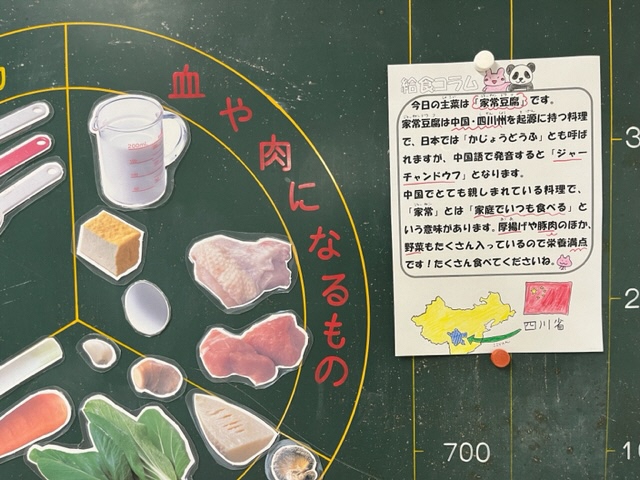 血や肉になるもの
200mL
給食コラム
今日の主菜は「家常豆腐」です。
家常豆腐は中国・四川州を起源に持つ料理
で、日本では「かじょうどうふ」とも呼ば
れますが、中国語で発音すると「ジャー
チャンドウフ」となります。
中国でとても親しまれている料理で、
「家常」とは「家庭でいつも食べる」と
いう意味があります。厚揚げや豚肉のほか、
野菜もたくさん入っているので栄養満点
です！たくさん食べてくださいね。
四川省
3
2
700
10